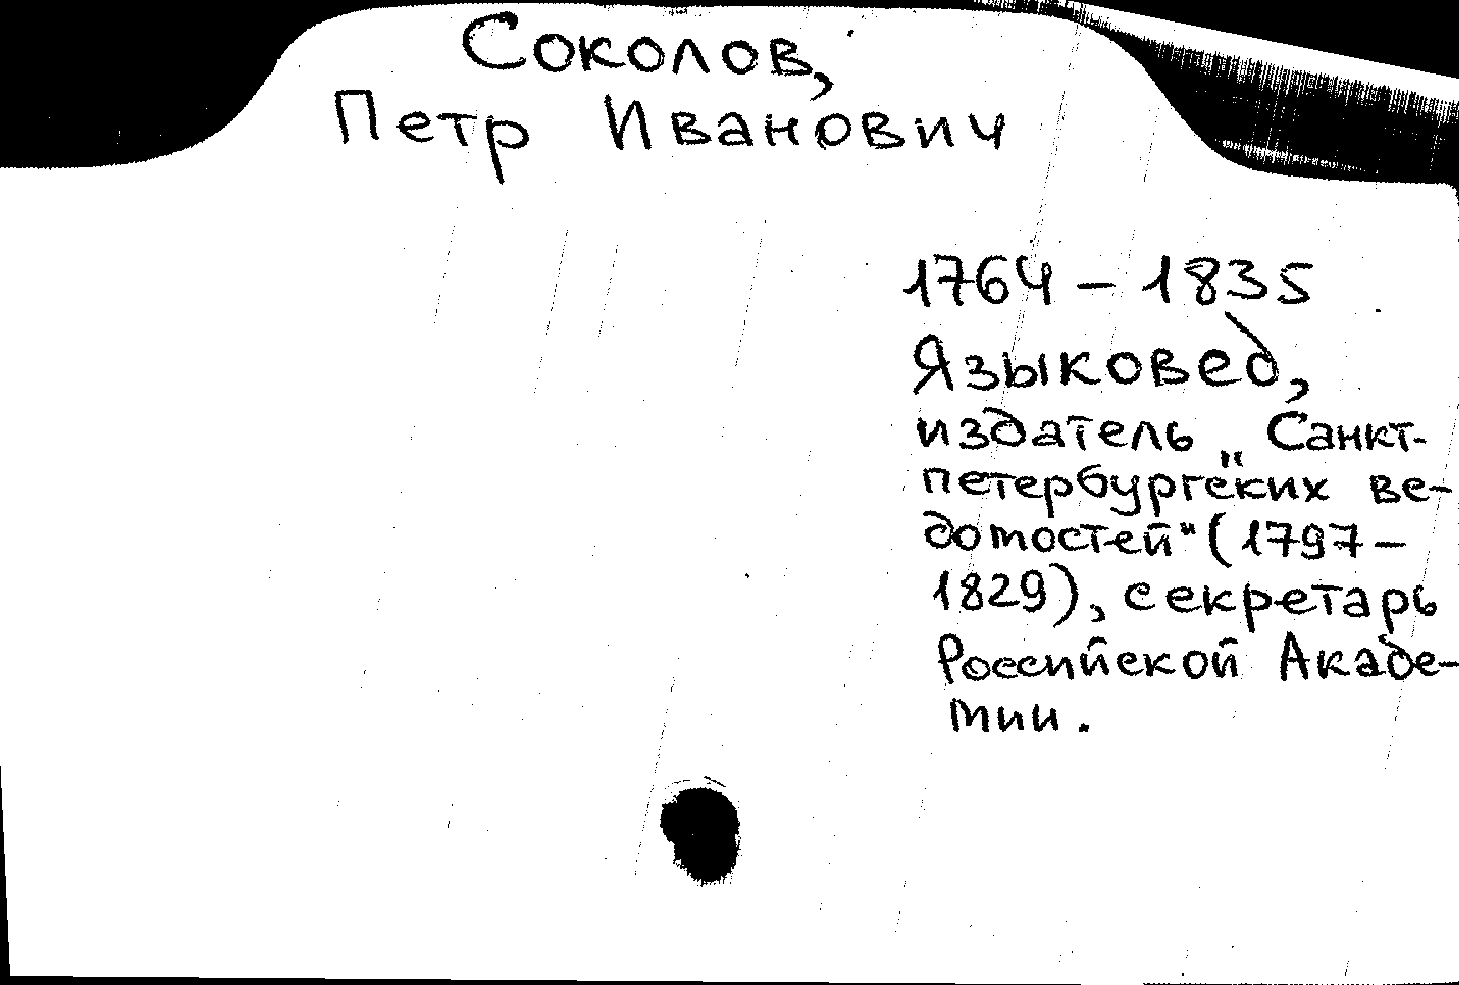 Соколов,
Петр Иванович
1764 – 1835
Языковед,
издатель „Санкт-
петербургских ве-
домостей“ (1797–
1829), секретарь
Российской Акаде-
мии.